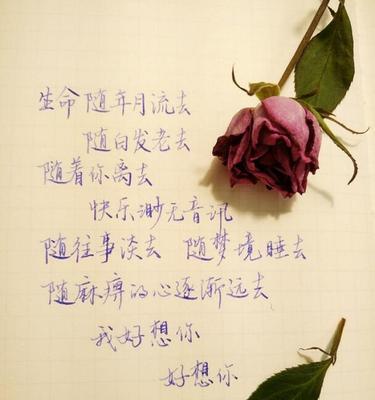 生命随年月流去
随白发老去
随着你离去
快乐渺无音讯
随往事淡去 随梦境睡去
随麻痹的心逐渐远去
我好想你
好想你